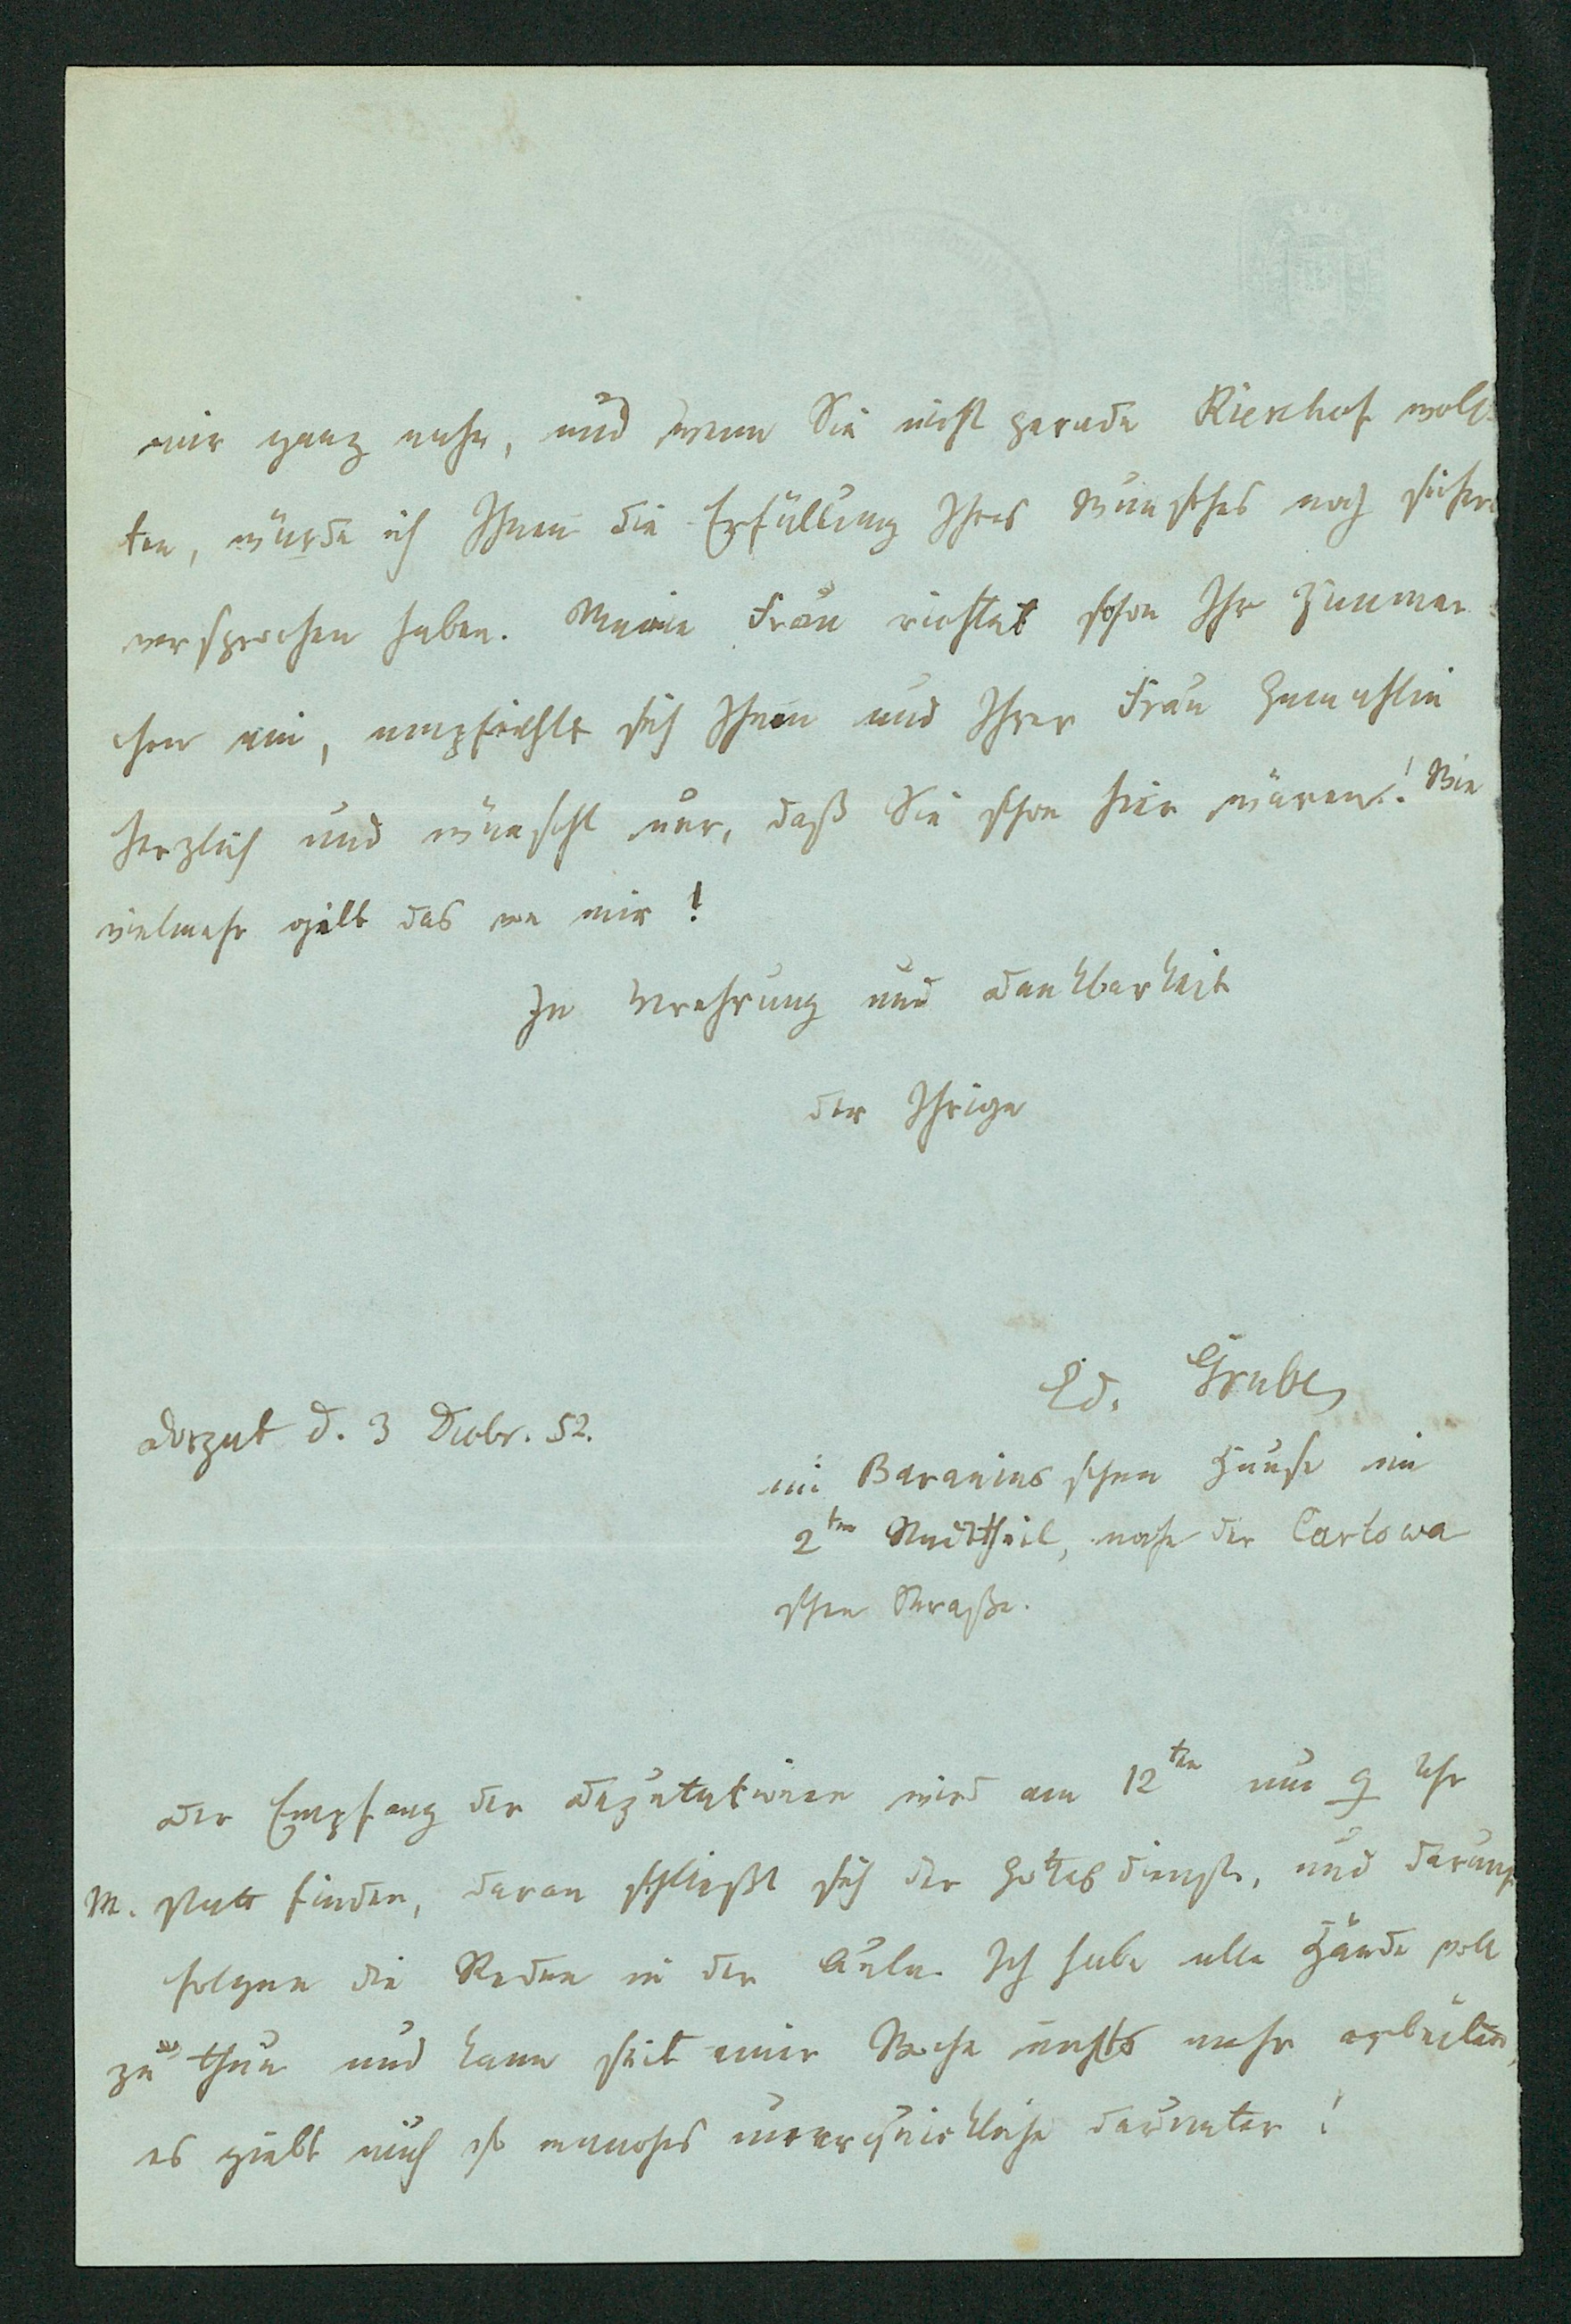 mir ganz nahe, und wenn Sie nicht gerade Riekhof woll-
ten, würde ich Ihnen die Erfüllung Ihres Wunsches noch sichrer
versprochen haben. Meine Frau richtet schon Ihr Zimmer-
chen ein, empfiehlt sich Ihnen und Ihrer Frau Gemahlin
herzlich und wünscht nur, daß Sie schon hier wären! Wie
vielmehr gilt das von mir!
In Verehrung und Dankbarkeit
der Ihrige
Ed. Grube
Dorpat d. 3 Decbr. 52.
im Baraniusschen Hause im
2ten Stadttheil, nahe der Carlowa
schen Straße.
Der Empfang der Deputationen wird am 12ten um 9 Uhr
M. statt finden, daran schließt sich der Gottesdienst, und darauf
folgen die Reden in der Aula. Ich habe alle Hände voll
zu thun und kann seit einer Woche nichts mehr arbeiten,
es giebt auch so manches unerquickliche darunter!